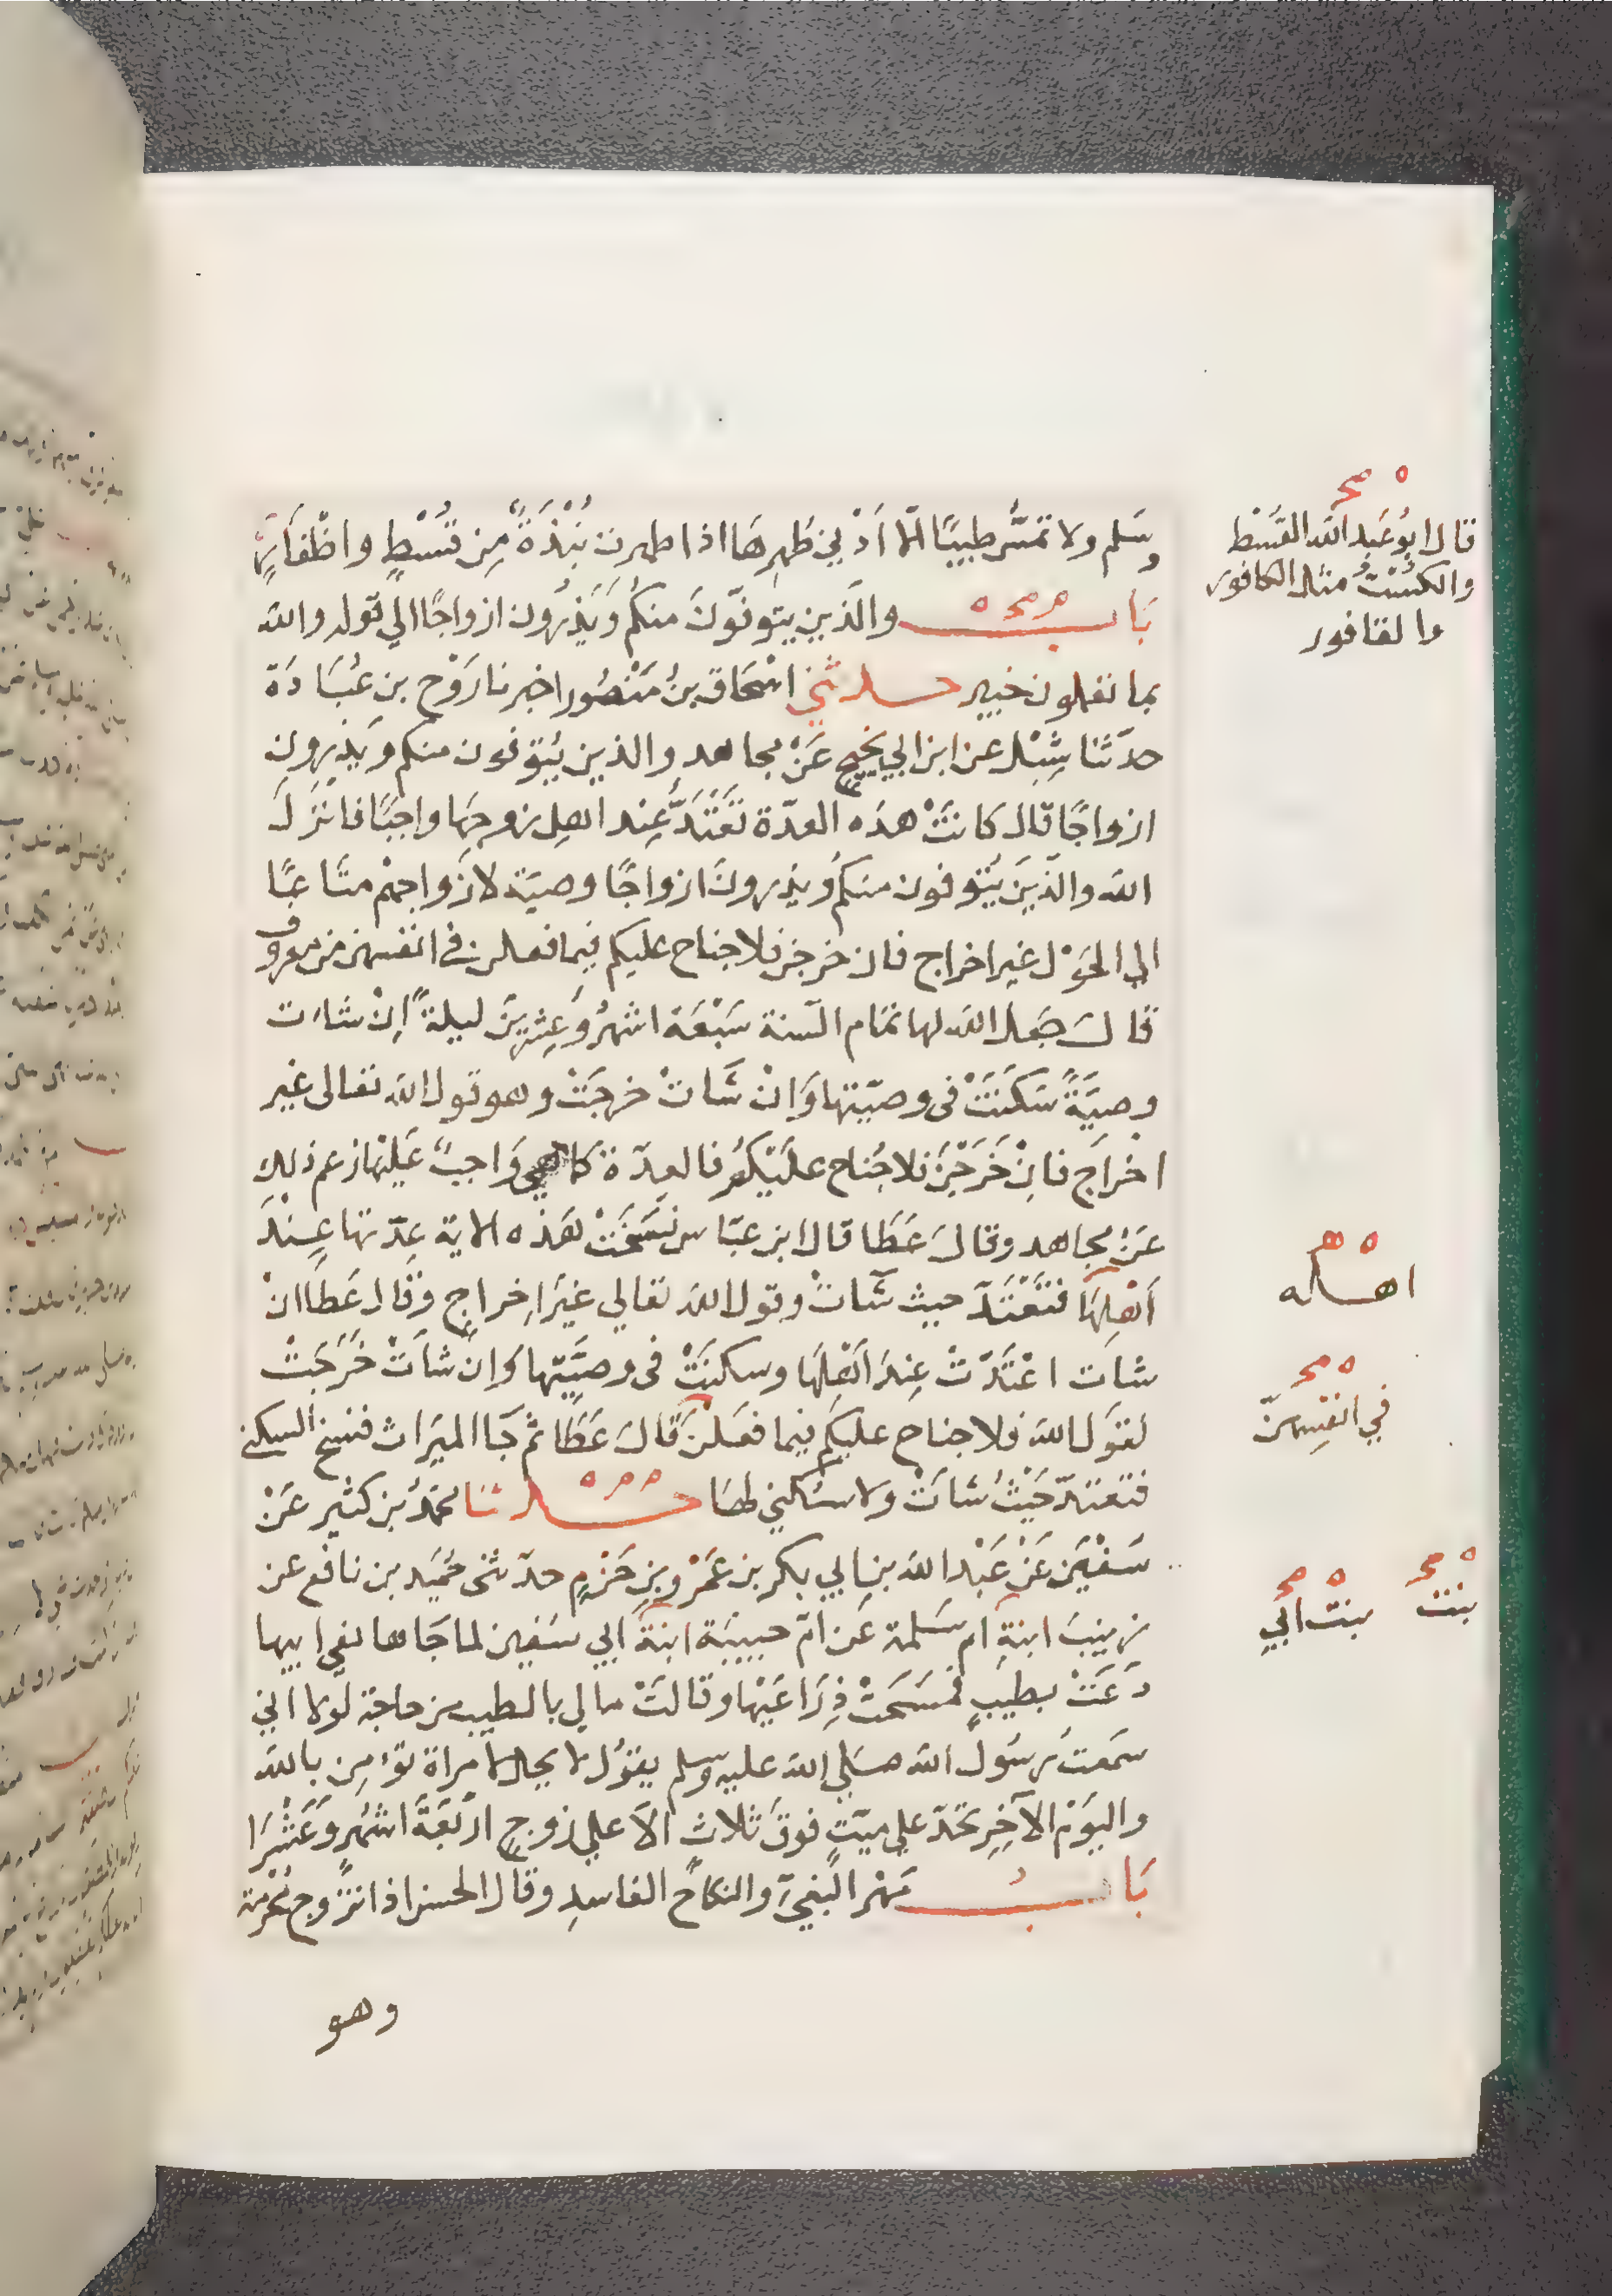 وسلم ولا تمسُّ طيبًا الّا اَدْني طُهرِهَا اذا طهرت نُبْذَةً مِن قُسْطٍ واظْفَارٍ
بَابٌ والّذين يتوفّونَ منكُم وَيَذرُون ازواجًا الي قوله والله
بما تعملون خبير حدثني اسْحَاق بنُ مَنْصُور اخبرنا رَوْح بن عُبَادَة
حدّثنا شِبْل عن ابن ابي نجيح عَنْ مجاهد والذين يُتوفون منكم ويَذرون
ازواجًا قال كانَتْ هذه العدّة تَعْتَدُّ عِند اهلِ زوجِهَا واجبًا فانْزَلَ
الله والّذِينَ يُتوفون منكم ويذرونَ ازواجًا وصيّة لازواجهمْ متاعًا
الى الحَوْل غير اخراج فان خرجن فلا جناح عليكم فيما فعلن في انفسهن من معروف
قالَ جَعل الله لها تمام السّنة سَبْعَة اشهُر وَعِشرِينَ ليلةً اِنْ شاءت
وصيَّةً سَكَنَتْ فى وصيّتها وَانْ شَاتْ خرجَتْ وهو قول الله تعالى غير
اخْرَاج فانِْ خَرَجْنَ فلا جُناح علَيْكُم فالعدّة كما هي وَاجبٌ عَلَيْها زعم ذلك
عَنْ مجاهد وقالَ عَطَا قال ابن عبّاس نَسَخَتْ هَذه الاية عِدّتها عِنْدَ
اَهْلِهَا فتَعْتَدّ حيث شَاتْ وقول الله تعالي غيَر اِخراجٍ وقَال عَطَا انْ
شات اعْتَدّتْ عِندَ اَهْلِهَا وسكنَتْ فى وصيَّتها وَاِن شاَتْ خَرَجَتْ
لقَول الله فلا جناح عليكم فيما فعَلن قَالَ عَطَا ثم جَا الميَراث فنسخ السكنى
فتعتدّ حَيْثُ شاتْ ولا سُكني لهَا حدثنا محمّدُ بن كثير عَنْ
سَفْيَن عَنْ عَبْد الله بنِ ابي بكر بن عَمْرو بنِ حَزمٍ حدّثنى حُمَيد بن نافع عن
زينبَ ابنةِ ام سَلمة عَن امّ حبيبَة ابنةَ ابي سَفين لما جَاها نعي ابيها
دَعَتْ بطيبٍ فمَسَحَتْ ذِرَاعَيْها وقالتْ مالي بالطيب من حاجة لَولا اني
سمَعتُ رسُول الله صَلي الله عليه وسلم يقوُل لا يحل لامراة تؤمِن بالله
واليَوْم الآخِرِ تَحَدّ علي ميّتٍ فوقَ ثلاثٍ الاَّ علي زوجٍ ارْبَعَةَ اشُهرٍ وَعَشْرَا
بَابُ مَهْرِ البغيّ والنكاح الفاسدِ وقال الحسن اذا تزّوج مُحْرمة
وهو
قال ابُو عَبد الله القسْط
والكُسْتُ مثل الكافور
والقافور
اهله
في انفِسهنّ
بنت
بنت ابي